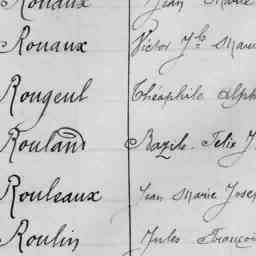 Rouaux Jean Marie
Rouaux Victor Jh Marie
Rougeul Théophile Alph
Rouland Bazile Felix J
Rouleaux Jean Marie Jose
Roulin Jules Françoi